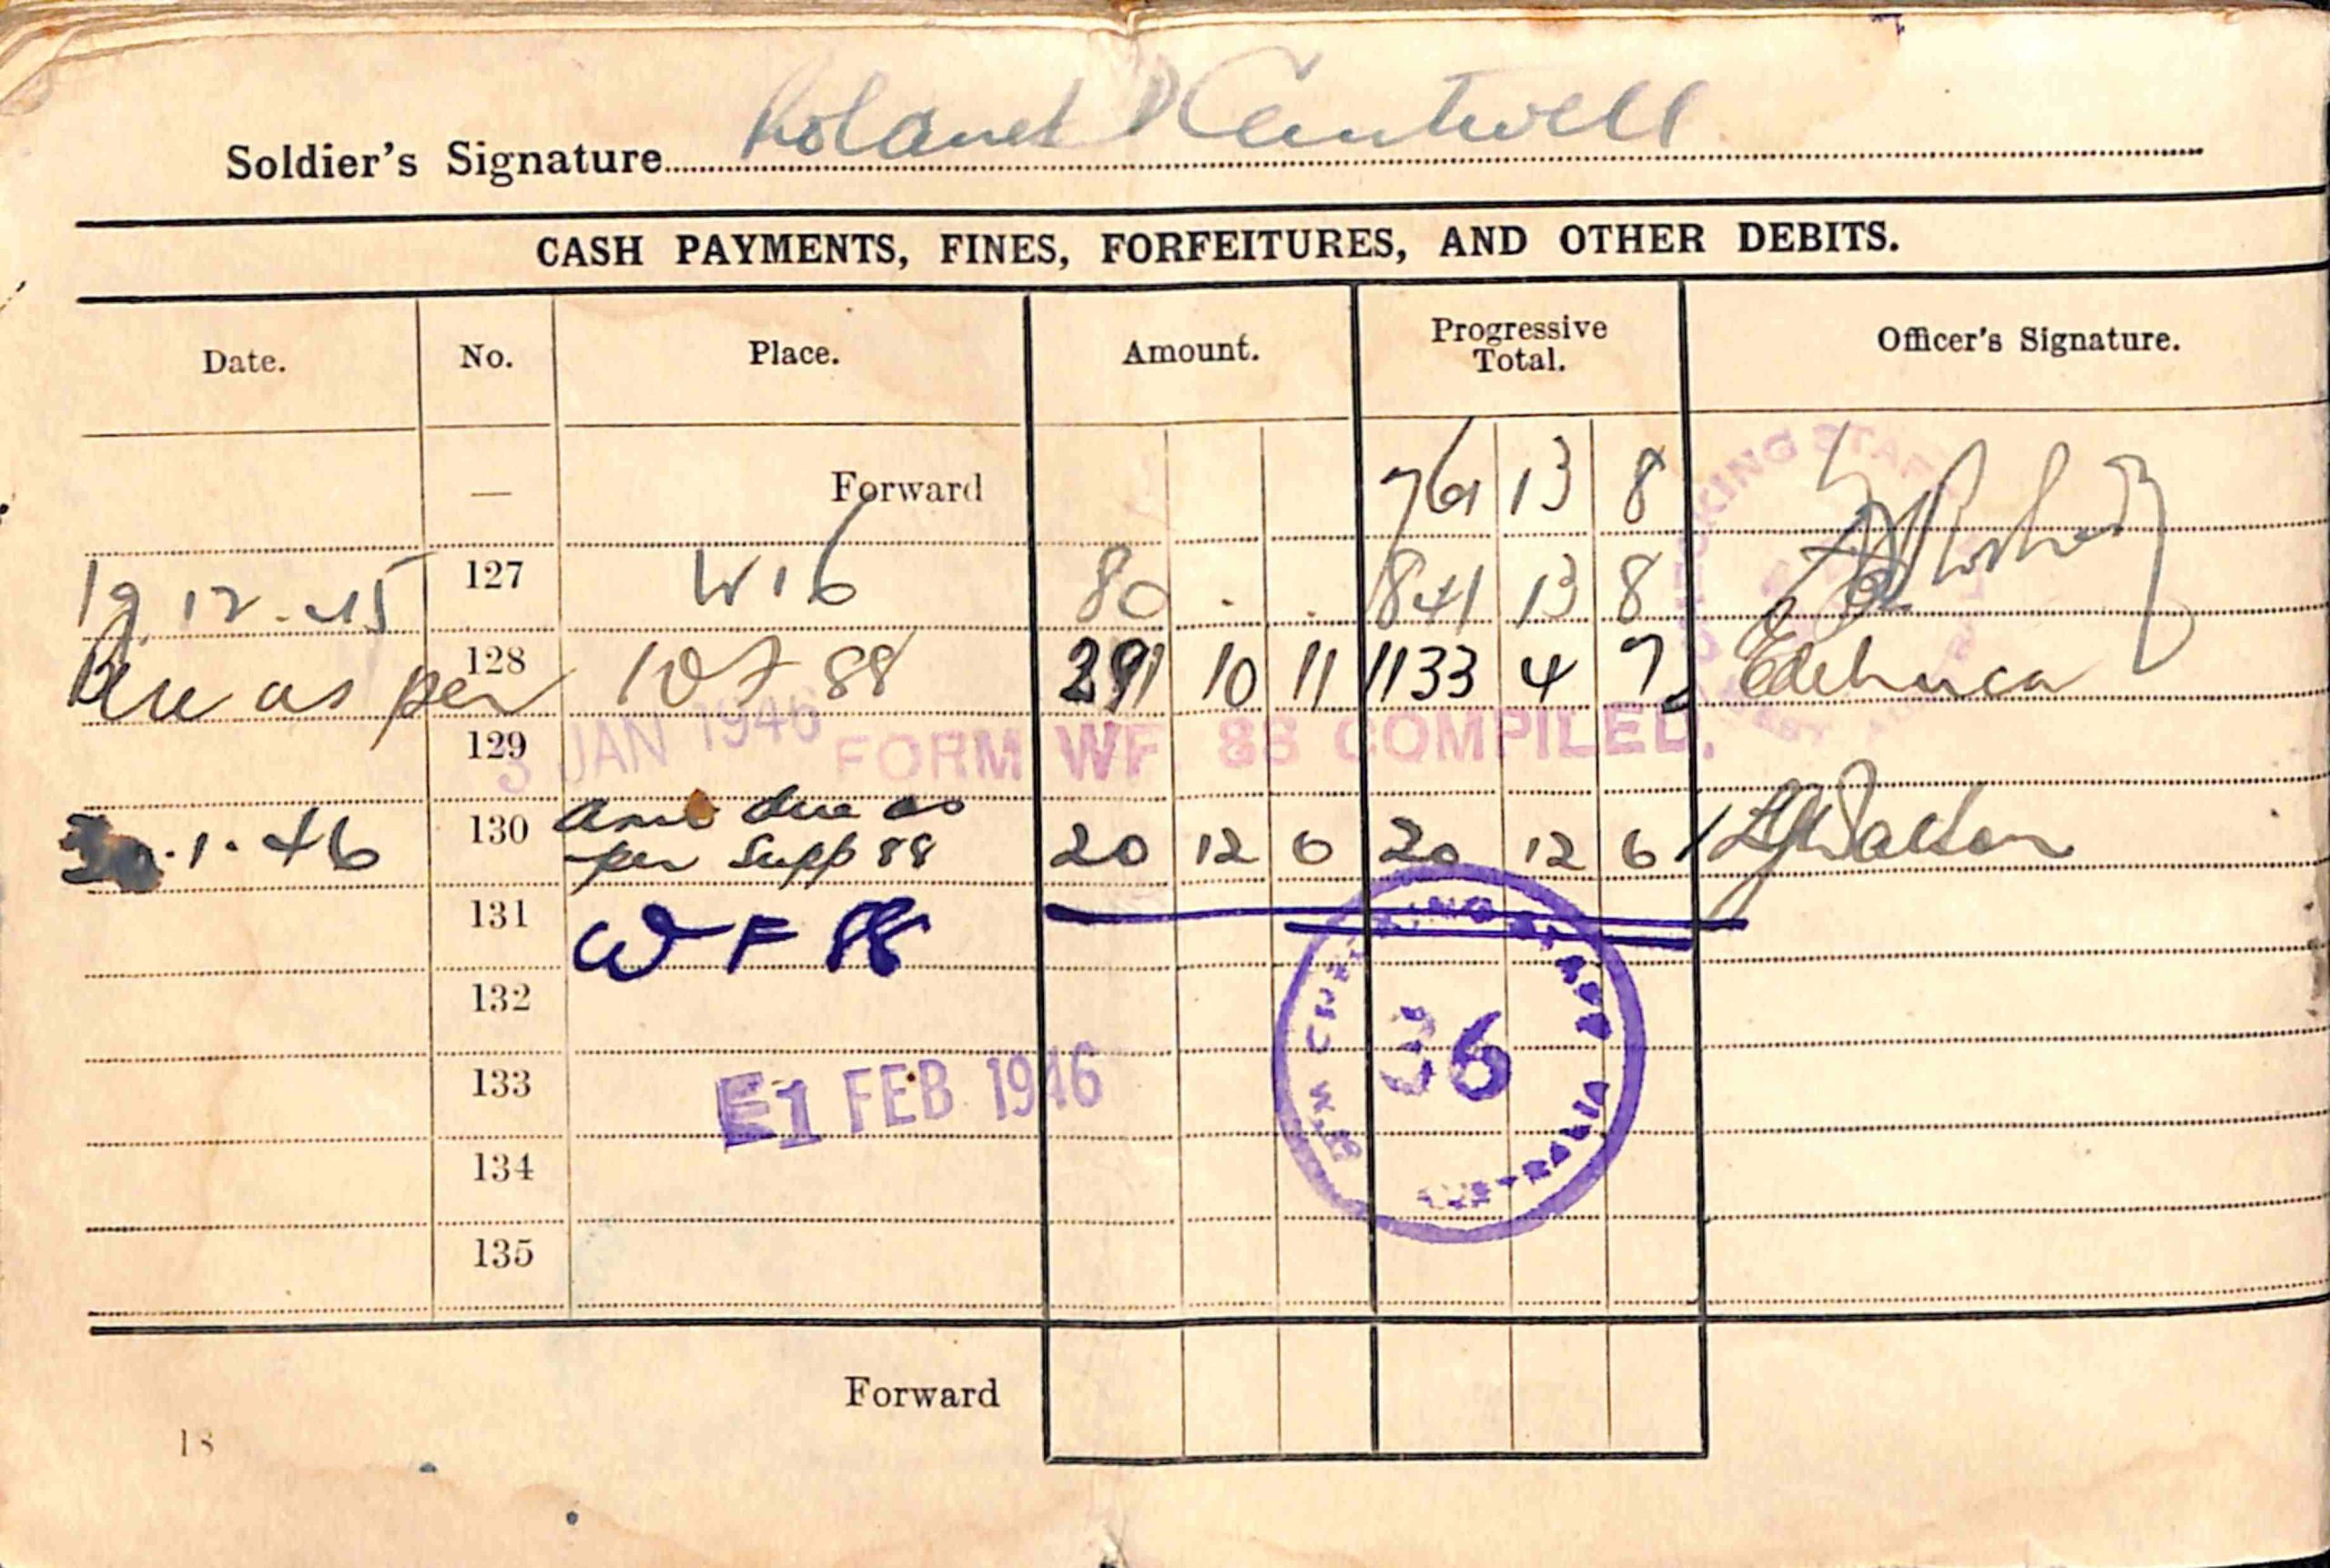 Soldier's Signature Roland Cantwell
CASH PAYMENTS, FINES, FORFEITURES, AND OTHER DEBITS.
Date. No. Place. Amount. Progressive Total. Officer's Signature.
— Forward 761 13 8
19.12.45 127 W16 80 . . 841 13 8
Due as per 128 WF 88 291 10 11 1133 4 7
129
3 JAN 1946 FORM WF 88 COMPILED.
.1.46 130 due as per Supp 88 20 12 6 20 12 6
131 WF 88
132
36
133
E1 FEB 1946
134
135
Forward
18